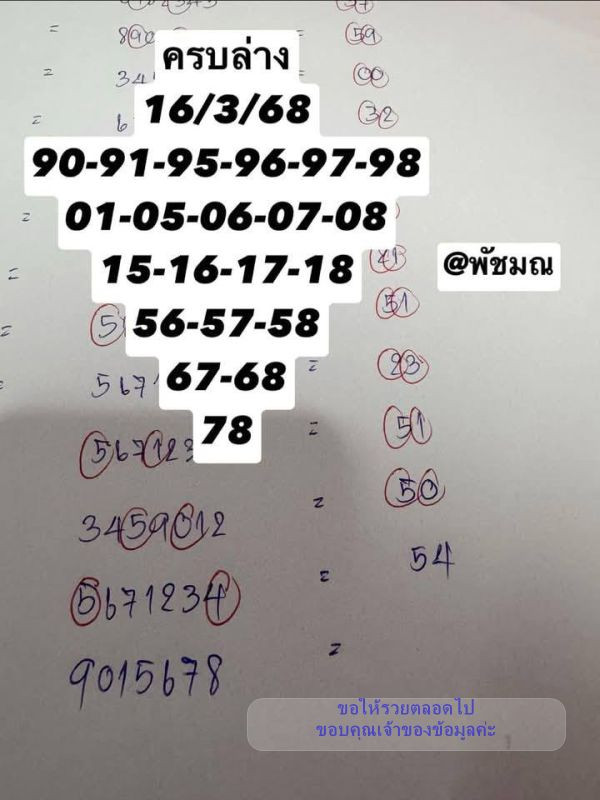 = 59
ครบล่าง
= 34 00
= 6 32
16/3/68
90-91-95-96-97-98
= 01-05-06-07-08
= 15-16-17-18 41
@พัชมณ
= 5 56-57-58 51
567 67-68 = 23
78
567123 = 51
3459012 = 50
5671234 = 54
9015678 =
ขอให้รวยตลอดไป
ขอบคุณเจ้าของข้อมูลค่ะ